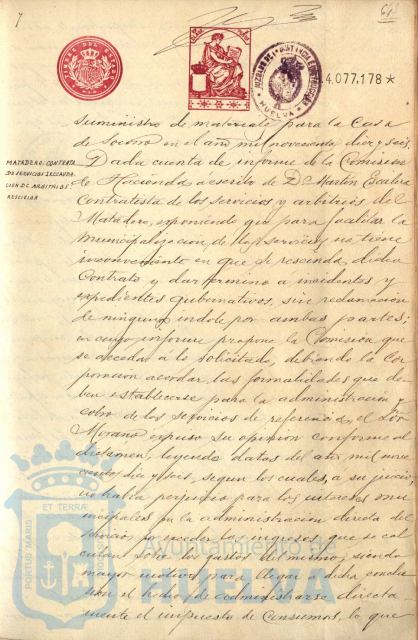 7
61
TIMBRE DEL ESTADO
HUELVA
4.077.178 *
suministro de materiales para la Casa
de Socorro en el año mil novecientos diez y seis.
MATADERO: CONTRATA
DE SERVICIOS I RECAUDA
CION DE ARBITRIOS
RESCISION
Dada cuenta de informe de la Comision
de Hacienda á escrito de D. Martin
Contratista de los servicios y arbitrios del
Matadero, exponiendo que para facilitar la
municipalizacion de los servicios no tiene
inconveniente en que se rescinda dicho
Contrato y dar termino a incidentes y
expedientes gubernativos, sin reclamacion
de ninguna indole por ambas partes;
en cuyo informe propone la Comision que
se acceda á lo solicitado, debiendo la Cor
poracion acordar las formalidades que de
ben establecerse para la administracion y
cobro de los servicios de referencia, el Sor
Morano expuso su opinion conforme al
dictamen, leyendo datos del año mil nove
cientos diez y seis, segun los cuales, á su juicio,
no habia perjuicio para los intereses mu
nicipales en la administracion directa del
servicio, por los ingresos que se cal
culan sobre los gastos del mismo, siendo
mayor motivo para llegar á dicha conclu
sion el hecho de administrarse directa
mente el impuesto de Consumos, lo que
PORTUS MARIS
ET TERRAE
Ayuntamiento de
HUELVA